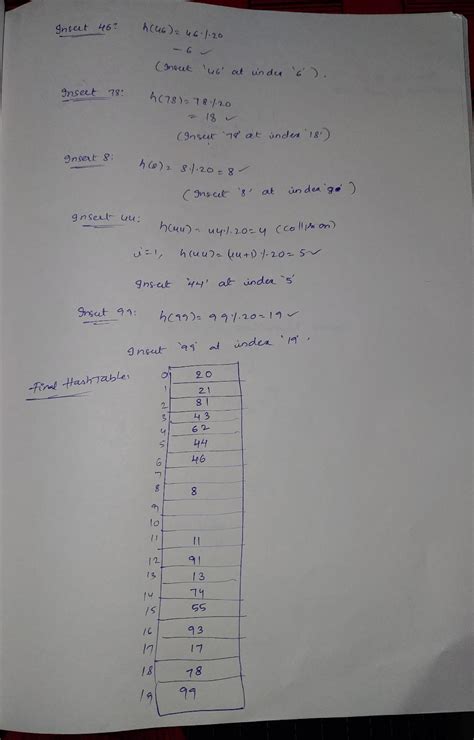 Insert 46: h(46) = 46 % 20
= 6 ✓
(Insert '46' at index '6').
Insert 78: h(78) = 78 % 20
= 18 ✓
(Insert '78' at index '18')
Insert 8: h(8) = 8 % 20 = 8 ✓
(Insert '8' at index )
Insert 44:
h(44) = 44 % 20 = 4 (collision)
i=1, h(44) = (44+1) % 20 = 5 ✓
Insert '44' at index '5'
Insert 99: h(99) = 99 % 20 = 19 ✓
Insert '99' at index '19'.
Final HashTable:
0 20
1 21
2 81
3 43
4 62
5 44
6 46
7
8 8
9
10
11 11
12 91
13 13
14 74
15 55
16 93
17 17
18 78
19 99